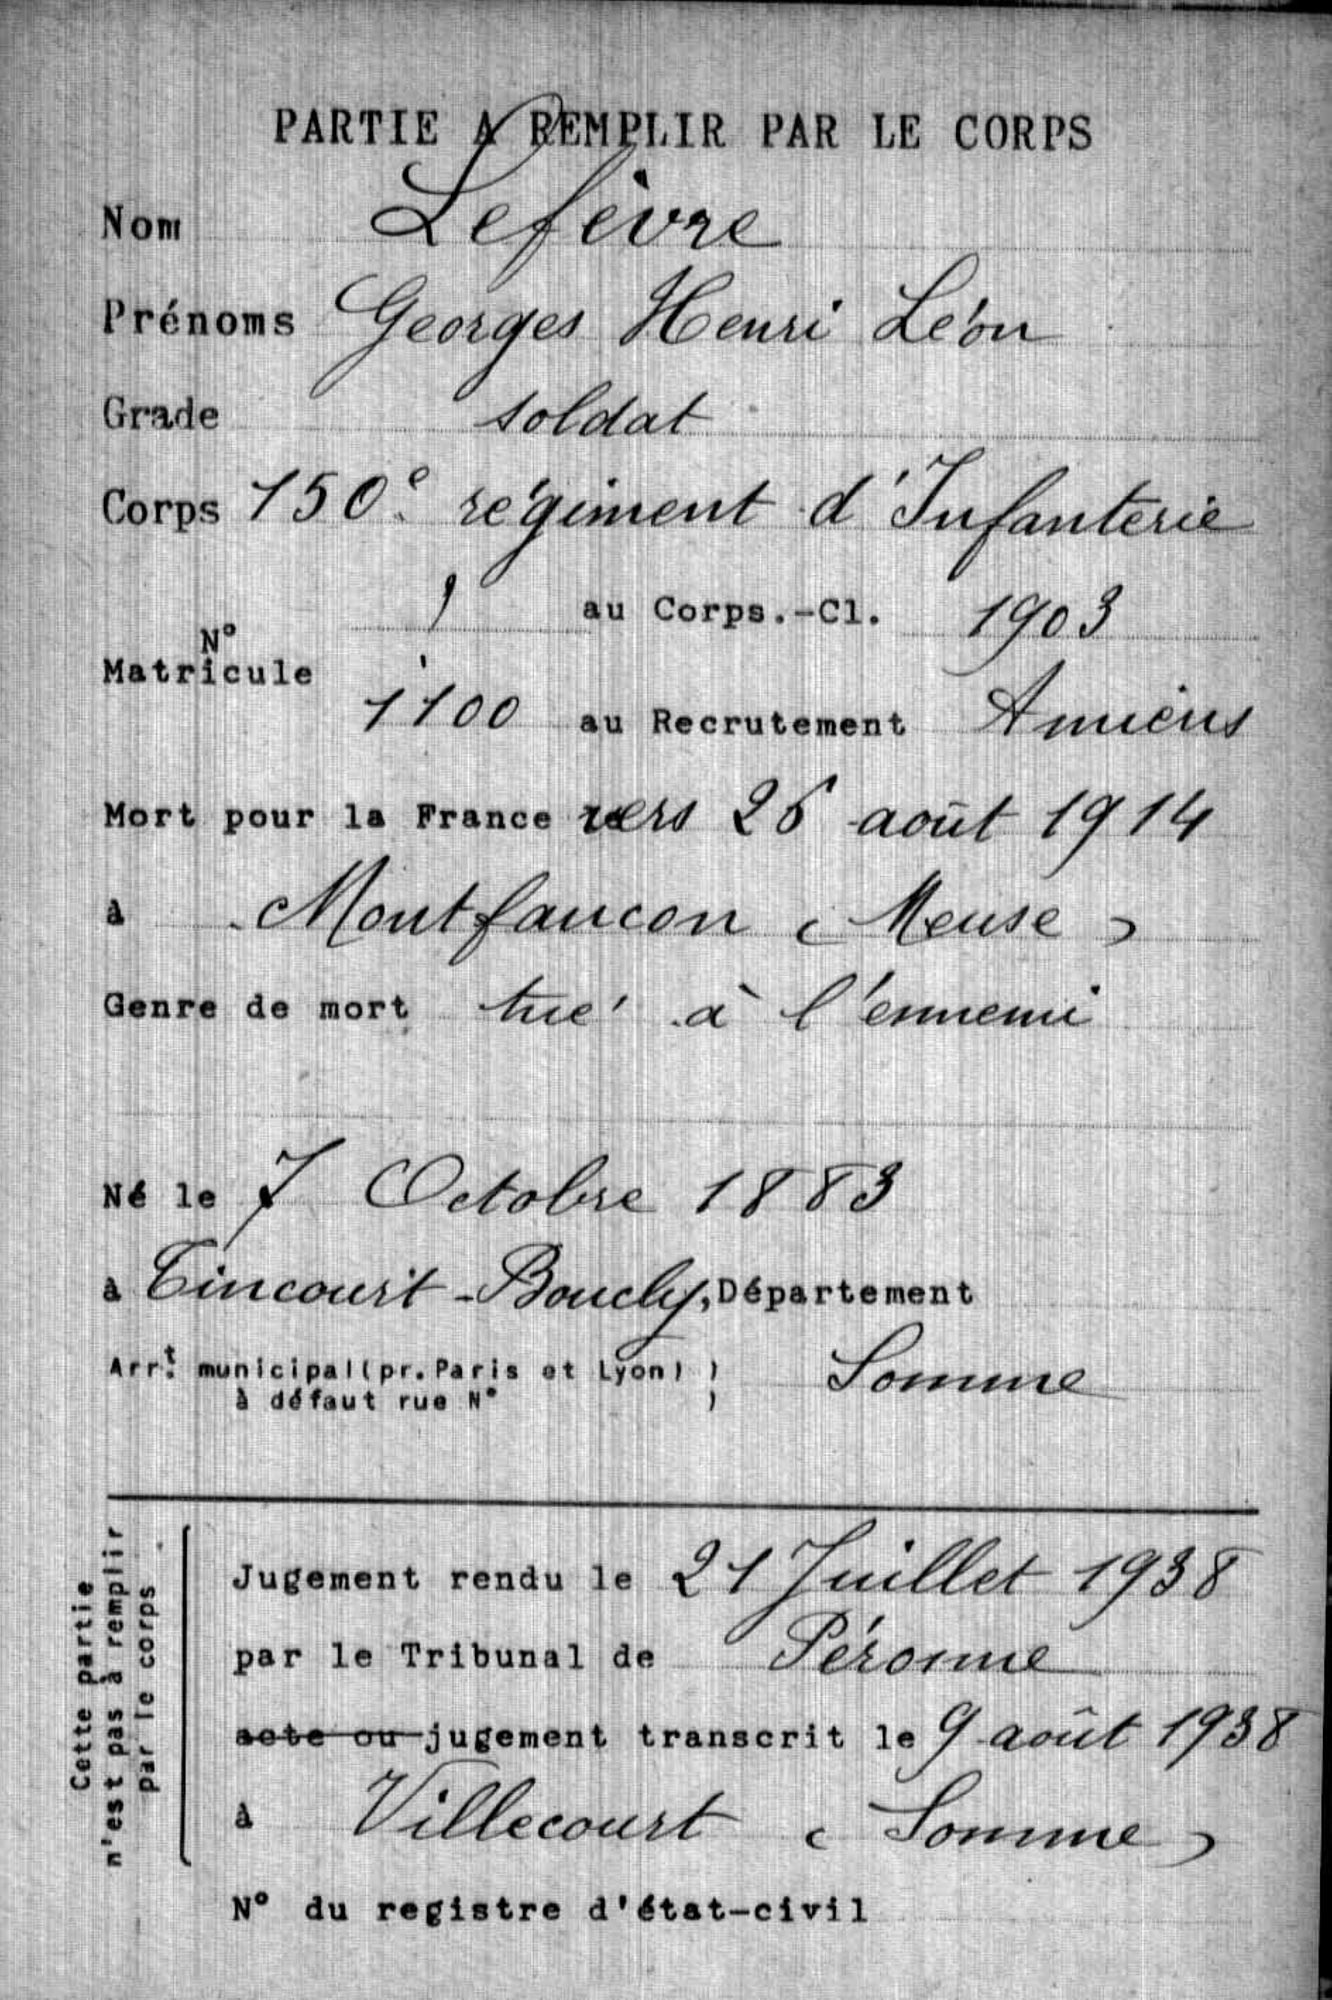 PARTIE A REMPLIR PAR LE CORPS
Nom Lefèvre
Prénoms Georges Henri Léon
Grade soldat
Corps 150e régiment d'Infanterie
N° Matricule
au Corps.-Cl. 1903
1100 au Recrutement Amiens
Mort pour la France vers 25 août 1914
à Montfaucon (Meuse)
Genre de mort tué à l'ennemi
Né le 7 Octobre 1883
à Tincourt-Boucly, Département
Arrt municipal (pr. Paris et Lyon) ) Somme
à défaut rue N° )
Cette partie
n'est pas à remplir
par le corps
Jugement rendu le 21 Juillet 1938
par le Tribunal de Péronne
acte ou jugement transcrit le 9 août 1938
à Villecourt (Somme)
N° du registre d'état-civil